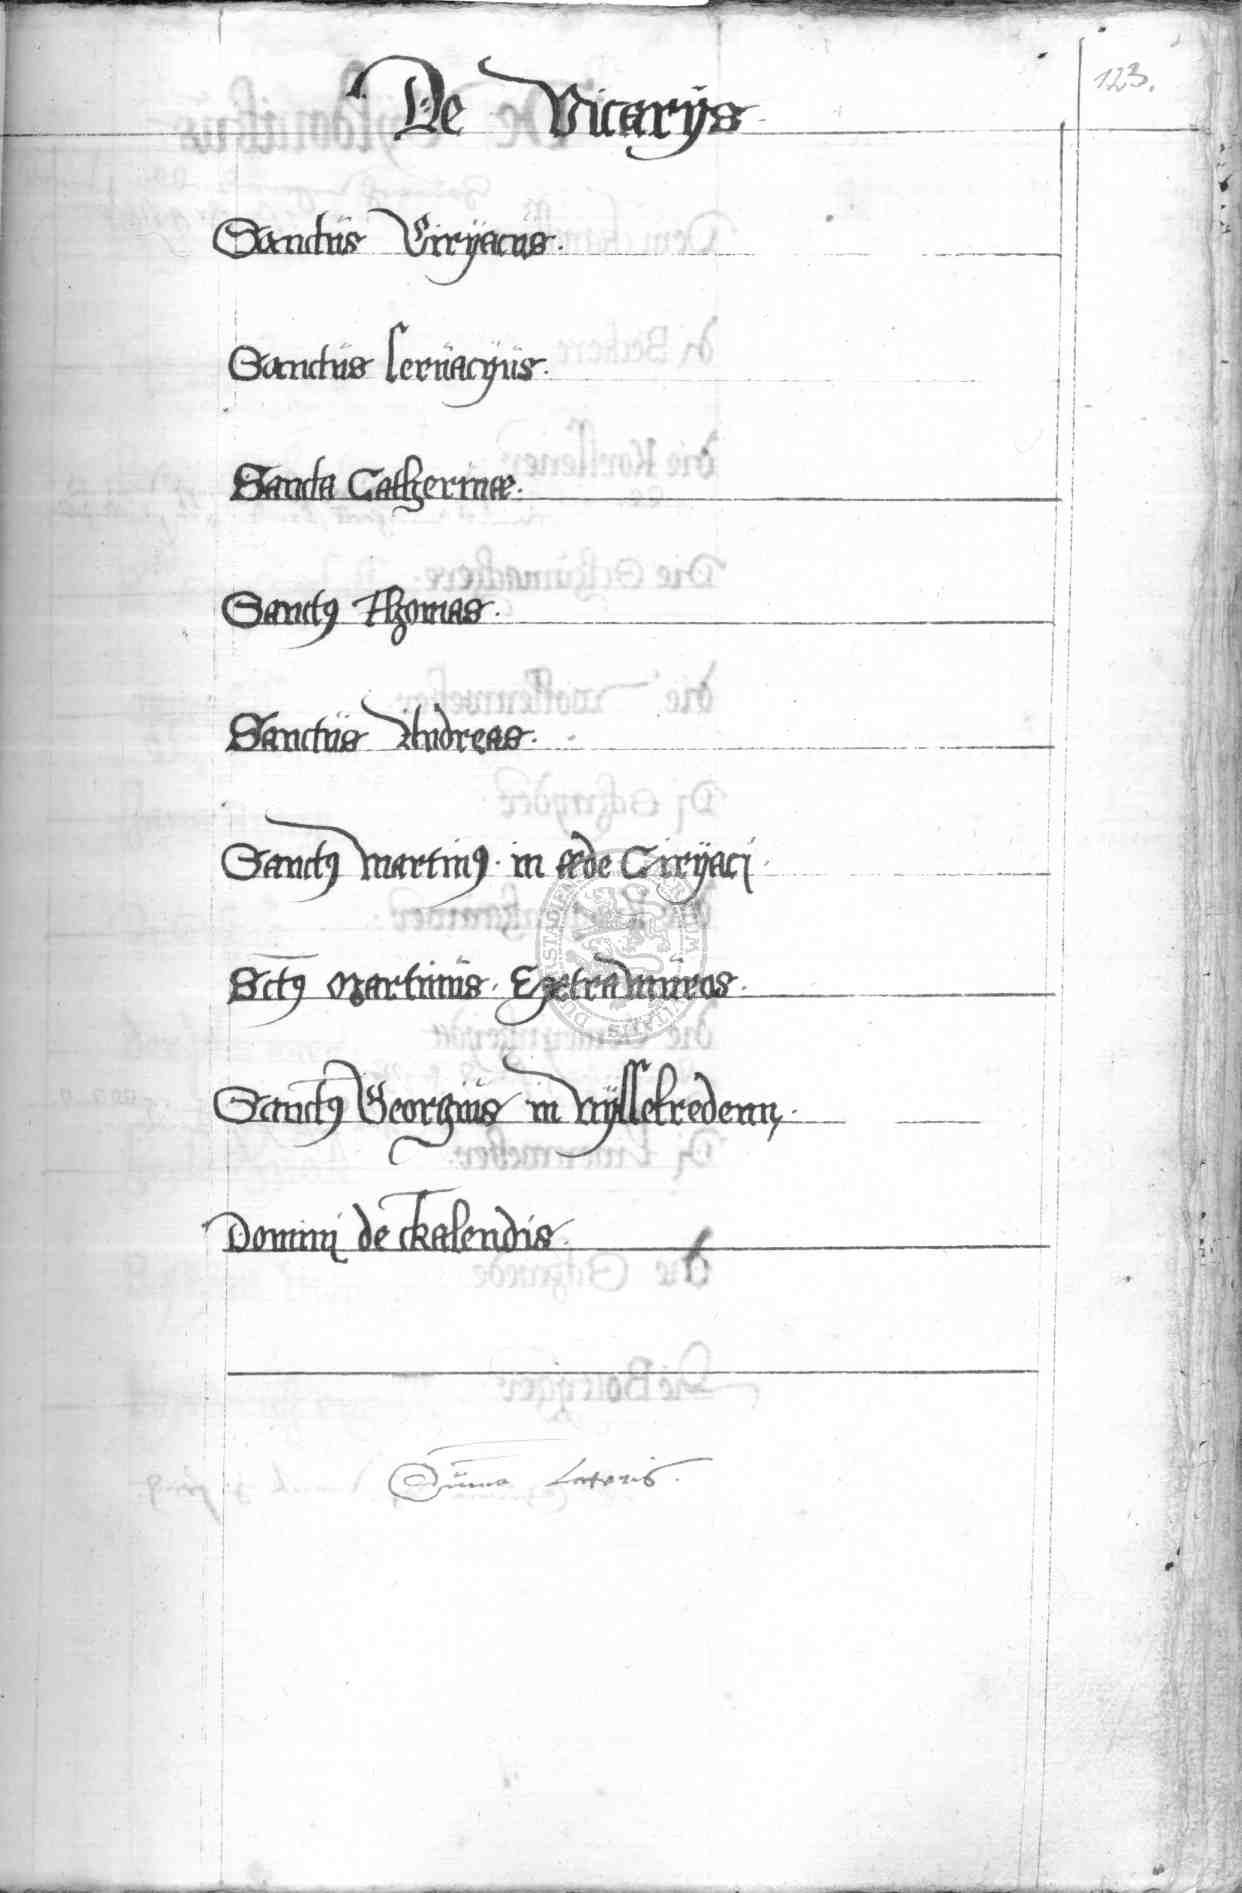 123.
De Vicarijs
Sanctus Cirijacus.
Sanctus seruacijus.
Sancta Catherinae.
Sanctꝰ Thomas.
Sanctus Andreas.
Sanctꝰ martinꝰ in aede Cirijaci
Sctꝰ Martinus. Extra muros.
Sanctꝰ Georgius in
Dominj de kalendis.
Suma Lateris.